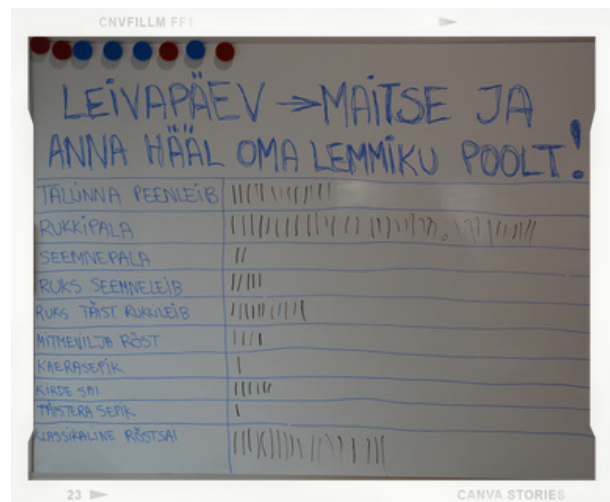 CNVFILLM FF1
LEIVAPÄEV → MAITSE JA
ANNA HÄÄL OMA LEMMIKU POOLT!
TALLINNA PEENLEIB
RUKKIPALA
SEEMNEPALA
RUKS SEEMNELEIB
RUKS TÄIST RUKKILEIB
MITMEVILJA RÖST
KAERASEPIK
KIRDE SAI
TÄISTERA SEPIK
KLASSIKALINE RÖSTSAI
23
CANVA STORIES